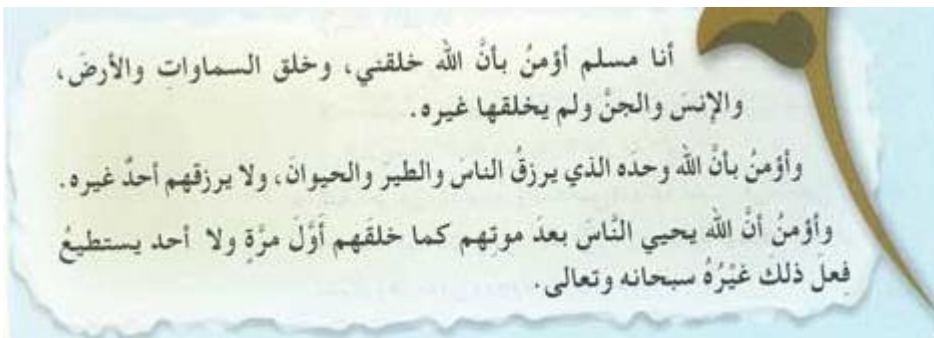 أنا مسلم أؤمنُ بأنَّ الله خلقني، وخلق السماواتِ والأرضَ،
والإنسَ والجنَّ ولم يخلقها غيره.
وأؤمنُ بأنَّ الله وحدَه الذي يرزقُ الناسَ والطيرَ والحيوانَ، ولا يرزقهم أحدٌ غيره.
وأؤمنُ أنَّ الله يحيي النَّاسَ بعدَ موتِهم كما خلقَهم أوَّلَ مرَّةٍ ولا أحد يستطيعُ
فِعلَ ذلكَ غَيْرُهُ سبحانه وتعالى.